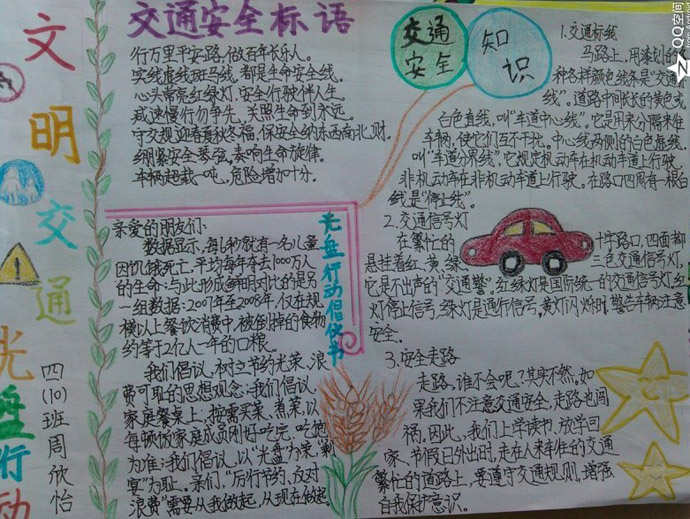 文明交通
光盘行动
四(10)班周欣怡
交通安全标语
行万里平安路,做百年长乐人。
实线虚线斑马线,都是生命安全线。
心头常亮红绿灯,安全行驶伴人生。
减速慢行勿争先,关照生命到永远。
守交规迎春夏秋冬福,保安全纳东西南北财。
绷紧安全琴弦,奏响生命旋律。
车辆超载一吨,危险增加十分。
光盘行动倡议书
亲爱的朋友们:
数据显示,每6秒就有一名儿童
因饥饿死亡,平均每年夺去1000万人
的生命;与此形成鲜明对比的是另
一组数据:2007年至2008年,仅在规
模以上餐饮消费中,被倒掉的食物
约等于2亿人一年的口粮。
我们倡议,树立节约光荣、浪
费可耻的思想观念;我们倡议,
家庭餐桌上,按需买菜、煮菜,以
每顿饭家庭成员刚好吃完、吃饱
为准;我们倡议,以“光盘”为荣,“剩
宴”为耻。亲们,“厉行节约、反对
浪费”需要从我做起,从现在做起。
交通安全
知识
1.交通标线
马路上,用漆划的
种各样颜色线条是“交通
线”。道路中间长长的黄色或
白色直线,叫“车道中心线”。它是用来分隔来往
车辆,使它们互不干扰。中心线两侧的白色虚线,
叫“车道分界线”。它规定机动车在机动车道上行驶,
非机动车在非机动车道上行驶。在路口四周有一根白
线是“停止线”。
2.交通信号灯
在繁忙的十字路口,四面都
悬挂着红、黄、绿三色交通信号灯,
它是不出声的“交通警”。红绿灯是国际统一的交通信号灯。红
灯停止信号,绿灯是通行信号。黄灯闪烁时,警告车辆注意
安全。
3.安全走路
走路,谁不会呢?其实不然。如
果我们不注意交通安全,走路也闯
祸。因此,我们上学读书、放学回
家、节假日外出时,走在人来车往的交通
繁忙的道路上,要遵守交通规则,增强
自我保护意识。
QQ空间